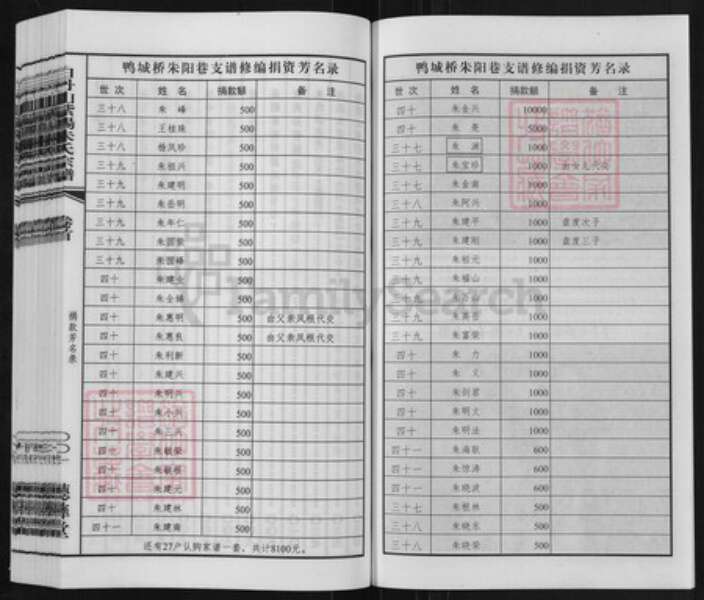 鸭城桥朱阳巷支谱修编捐资芳名录
世次 姓名 捐款额 备注
三十八 朱峰 500
三十八 王桂珠 500
三十八 杨凤珍 500
三十九 朱祖兴 500
三十九 朱建明 500
三十九 朱岳明 500
三十九 朱年仁 500
三十九 朱国 500
三十九 朱国峰 500
四十 朱建 500
四十 朱全 500
四十 朱惠明 500 由父亲凤根代交
四十 朱惠良 500 由父亲凤根代交
四十 朱利新 500
四十 朱建兴 500
四十 朱明兴 500
四十 朱小兴 500
四十 朱三兴 500
四十 朱 500
四十 朱根 500
四十 朱建元 500
四十 朱建林 500
四十一 朱建南 500
还有27户认购家谱一套，共计8100元。
捐款芳名录
鸭城桥朱阳巷支谱修编捐资芳名录
世次 姓名 捐款额 备注
四十 朱金兴 10000
四十 朱亮 5000
三十七 朱 1000
三十七 朱宝珍 1000 由女儿代交
三十七 朱金南 1000
三十八 朱阿兴 1000
三十九 朱建平 1000 盘度次子
三十九 朱建刚 1000 盘度三子
三十九 朱祖元 1000
三十九 朱福山 1000
三十九 朱山 1000
三十九 朱 1000
三十九 朱富荣 1000
四十 朱力 1000
四十 朱义 1000
四十 朱剑君 1000
四十 朱明文 1000
四十 朱明法 1000
四十一 朱海耿 600
四十一 朱惊涛 600
四十一 朱晓波 600
三十七 朱根林 500
三十八 朱晓东 500
三十八 朱晓荣 500
FamilySearch